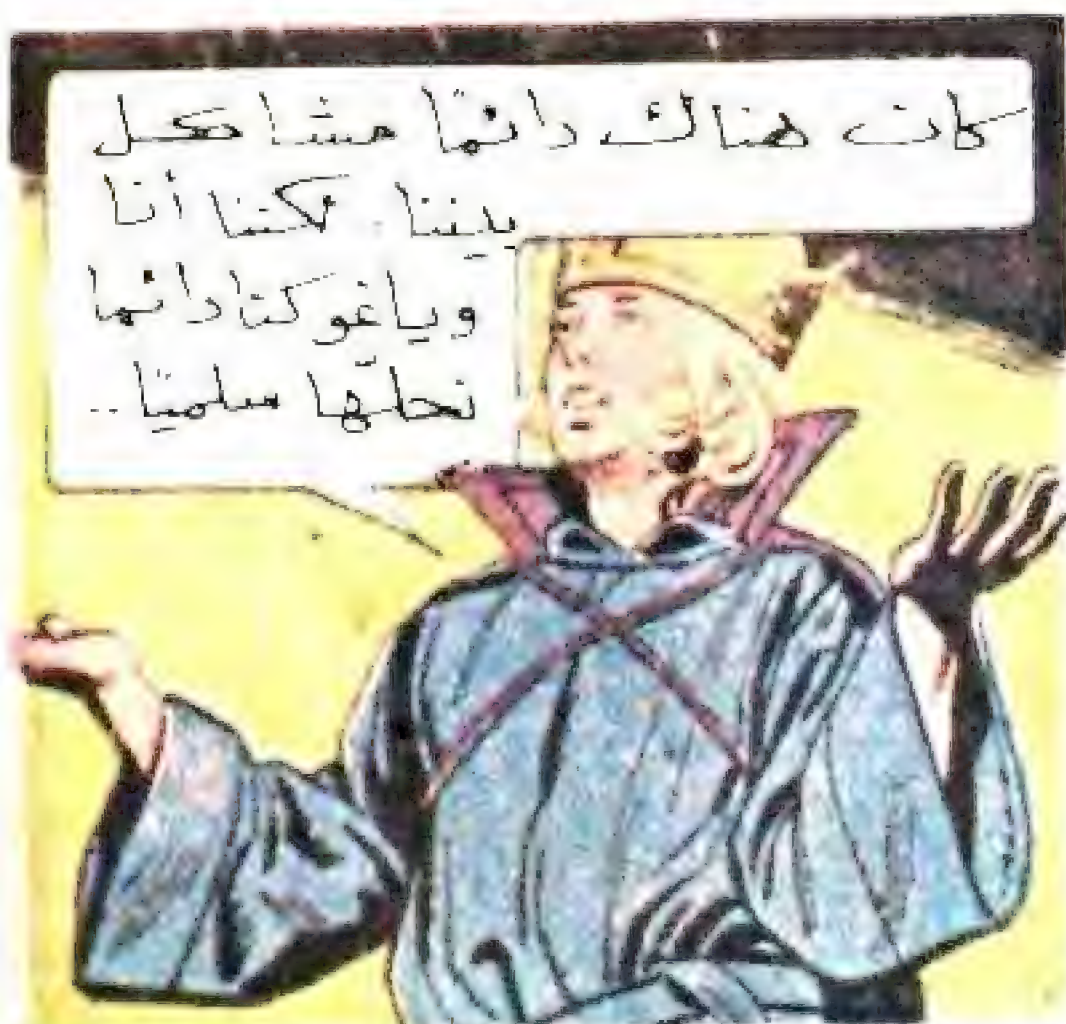 كان هناك دائمًا مشاكل
بيننا. لكننا أنا
وياغو كنا دائما
نحلّها سلميًا..